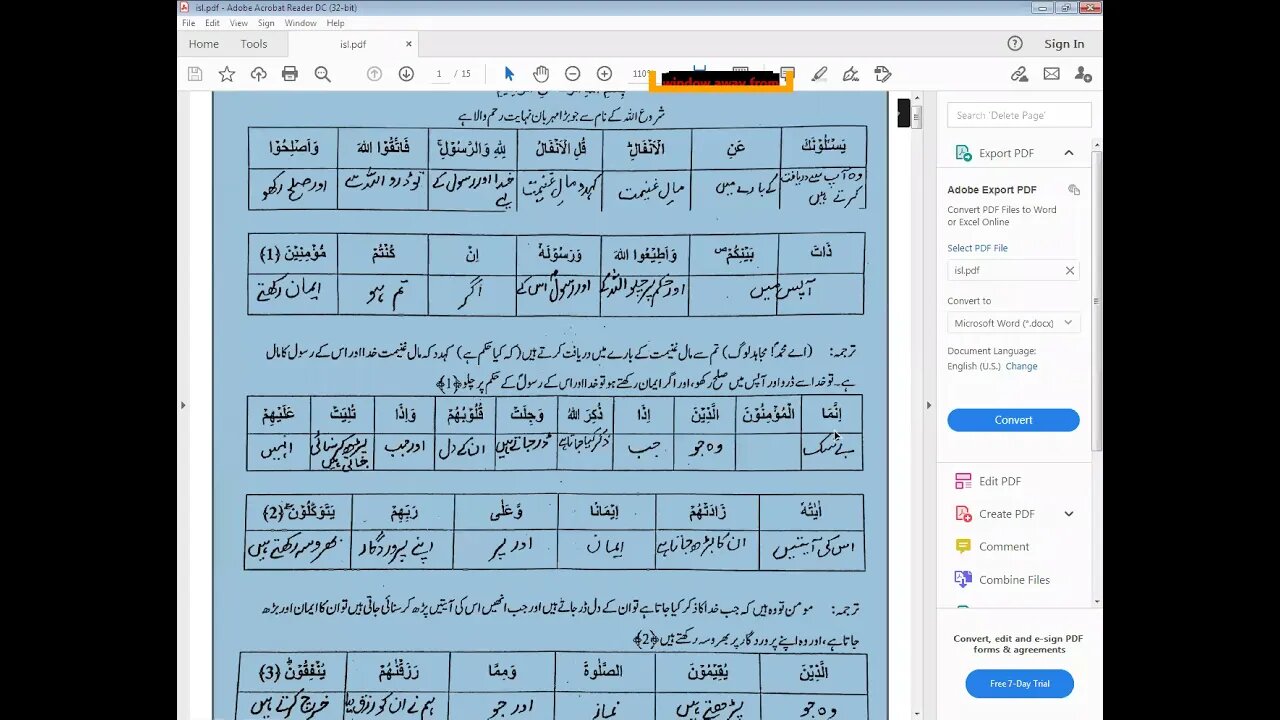 isl.pdf - Adobe Acrobat Reader DC (32-bit)
File Edit View Sign Window Help
Home Tools isl.pdf × Sign In
1 / 15 110%
window away from
شروع اللہ کے نام سے جو بڑا مہربان نہایت رحم والا ہے
يَسْـَٔلُوْنَكَ عَنِ الْاَنْفَالِ ؕ قُلِ الْاَنْفَالُ لِلّٰهِ وَالرَّسُوْلِ ۚ فَاتَّقُوا اللّٰهَ وَاَصْلِحُوْا
وہ آپ سے دریافت کرتے ہیں کے بارے میں مالِ غنیمت کہدو مالِ غنیمت خدا اور رسول کے لیے تو ڈرو اللہ سے اور صلح رکھو
ذَاتَ بَيْنِكُمْ ۪ وَاَطِيْعُوا اللّٰهَ وَرَسُوْلَهٗۤ اِنْ كُنْتُمْ مُّؤْمِنِيْنَ ﴿1﴾
آپس میں اور حکم پر چلو اللہ کے اور رسول اس کے اگر تم ہو ایمان رکھتے
ترجمہ: (اے محمدؐ! مجاہد لوگ) تم سے مال غنیمت کے بارے میں دریافت کرتے ہیں (کہ کیا حکم ہے) کہدو کہ مال غنیمت خدا اور اس کے رسول کا مال
ہے۔ تو خدا سے ڈرو اور آپس میں صلح رکھو، اور اگر ایمان رکھتے ہو تو خدا اور اس کے رسولؐ کے حکم پر چلو ﴿1﴾
اِنَّمَا الْمُؤْمِنُوْنَ الَّذِيْنَ اِذَا ذُكِرَ اللّٰهُ وَجِلَتْ قُلُوْبُهُمْ وَاِذَا تُلِيَتْ عَلَيْهِمْ
بے شک وہ جو جب ذکر کیا جاتا ہے ڈر جاتے ہیں ان کے دل اور جب پڑھ کر سنائی جاتی ہیں انہیں
اٰيٰتُهٗ زَادَتْهُمْ اِيْمَانًا وَّعَلٰى رَبِّهِمْ يَتَوَكَّلُوْنَ ﴿2﴾
اس کی آیتیں ان کا بڑھ جاتا ہے ایمان اور پر اپنے پروردگار بھروسہ رکھتے ہیں
ترجمہ: مومن تو وہ ہیں کہ جب خدا کا ذکر کیا جاتا ہے تو ان کے دل ڈر جاتے ہیں اور جب انھیں اس کی آیتیں پڑھ کر سنائی جاتی ہیں تو ان کا ایمان اور بڑھ
جاتا ہے، اور وہ اپنے پروردگار پر بھروسہ رکھتے ہیں ﴿2﴾
الَّذِيْنَ يُقِيْمُوْنَ الصَّلٰوةَ وَمِمَّا رَزَقْنٰهُمْ يُنْفِقُوْنَ ؕ ﴿3﴾
وہ جو پڑھتے ہیں نماز اور جو ہم نے ان کو رزق دیا خرچ کرتے ہیں
Search 'Delete Page'
Export PDF
Adobe Export PDF
Convert PDF Files to Word
or Excel Online
Select PDF File
isl.pdf ×
Convert to
Microsoft Word (*.docx)
Document Language:
English (U.S.) Change
Convert
Edit PDF
Create PDF
Comment
Combine Files
Convert, edit and e-sign PDF
forms & agreements
Free 7-Day Trial